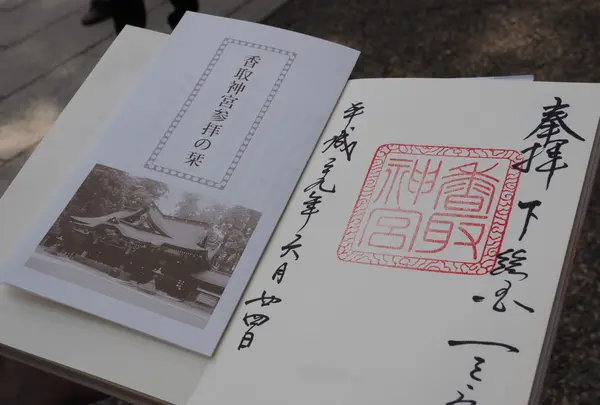 香取神宮参拝の栞
奉拝 下総国 一之
香取神宮
平成二九年六月廿四日